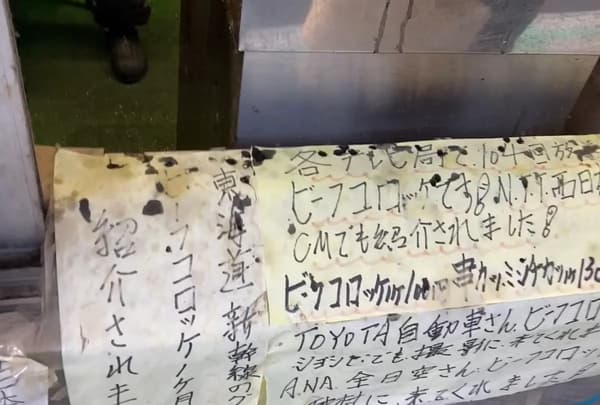 各テレビ局で、104回放
ビーフコロッケです!N.T.T.西日本
CMでも紹介されました!
ビーフコロッケ 串カツ ミンチカツ
TOYOTA自動車さん、ビーフコロ
ションでも撮影に、来てくれま
A.N.A.全日空さん、ビーフコロッ
取材に、来てくれました!
東海道新幹線のグ
ビーフコロッケ1ヶ月
紹介されま